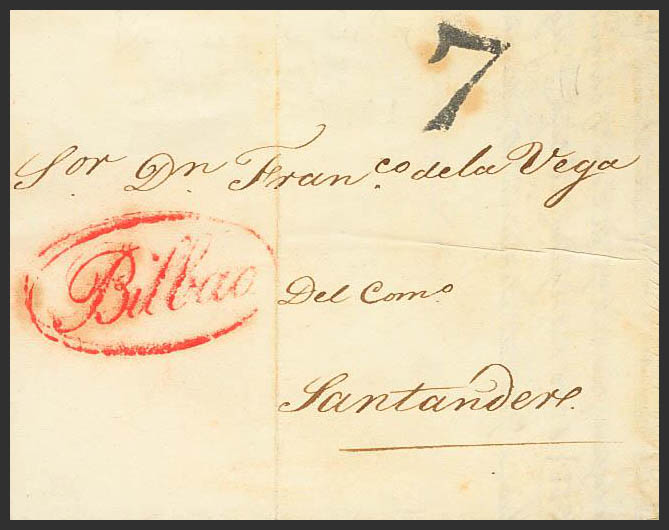 7
Sor Dn Franco de la Vega
Bilbao
Del Como
Santander